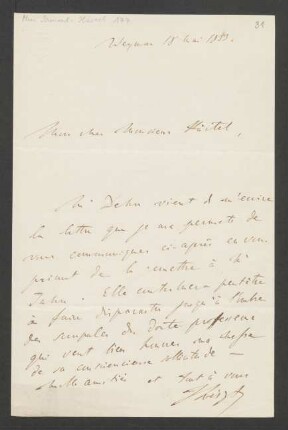 31
Weymar 18 mai 1853.
Mon cher Monsieur Härtel,
Mr Dehn vient de m'écrire
la lettre que je me permets de
vous communiquer ci-après en vous
priant de la remettre à Mr
Jahn. Elle contribuera peutêtre
à faire disparaitre jusqu'à l'ombre
des scrupules du docte professeur
qui veut bien
de sa
amitiés et tout à vous
F. Liszt